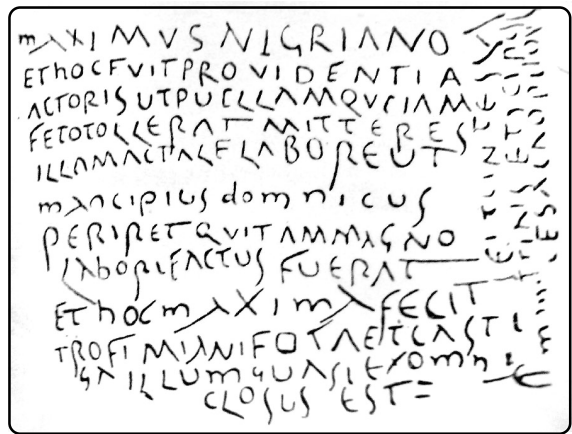 MAXIMVS NIGRIANO
ETHOCFVITPROVIDENTIA
ACTORISUTPUELLAMQVEIAM
FETOTOLLERAT MITTERES
ILLAMACTALELABOREUT
mancipius domnicus
PERIRETQVITAMMAGNO
laboriFACTUS FUERAT
EThocmaximaFECIT
TROFIMIANIFOTAETCASTI
GAILLUMQUASIEXOMNI
CLOSUS EST=